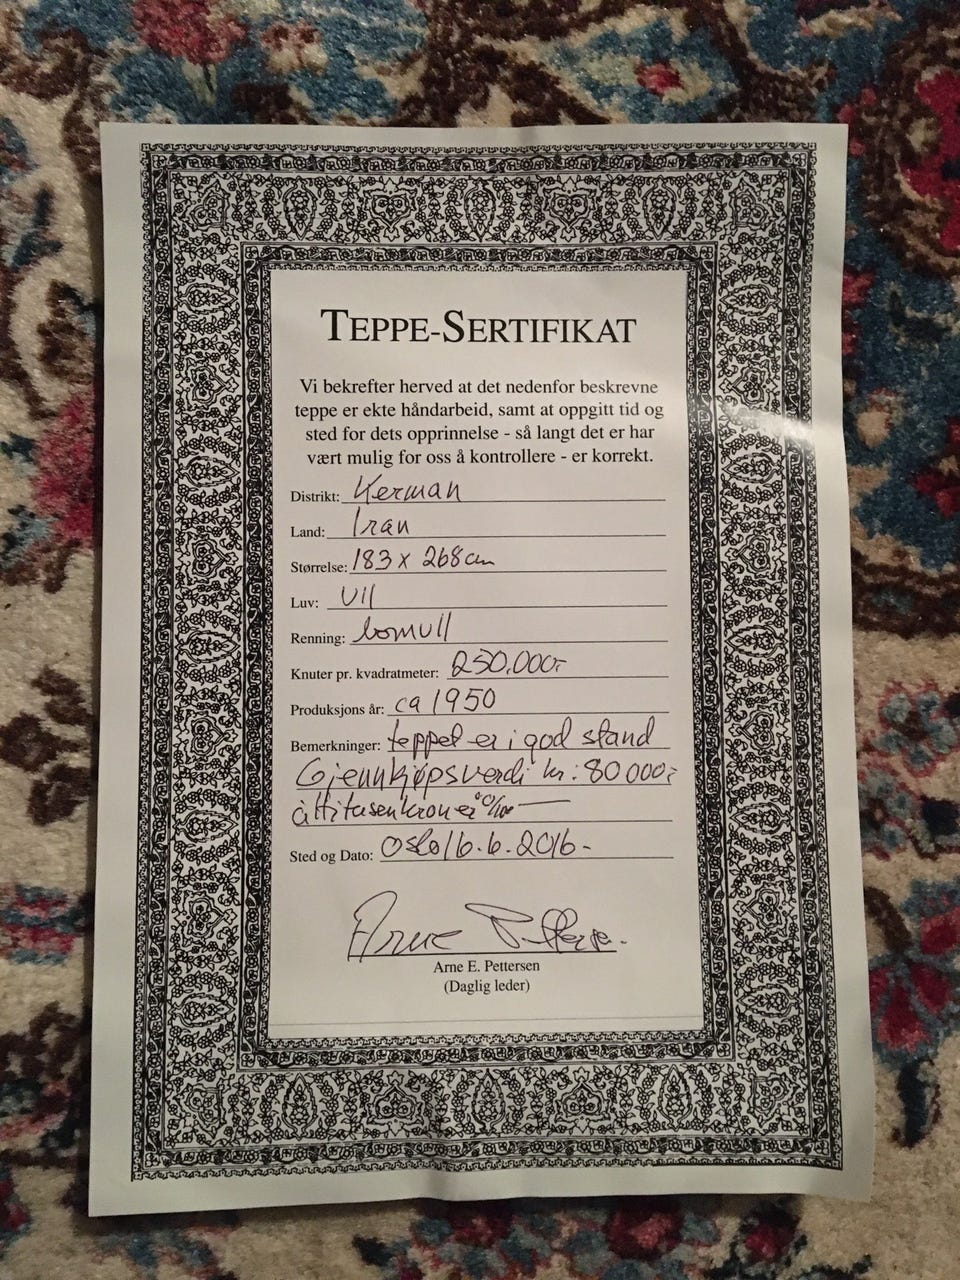 TEPPE-SERTIFIKAT
Vi bekrefter herved at det nedenfor beskrevne
teppe er ekte håndarbeid, samt at oppgitt tid og
sted for dets opprinnelse - så langt det er har
vært mulig for oss å kontrollere - er korrekt.
Distrikt: Kerman
Land: Iran
Størrelse: 183 x 268 cm
Luv: Ull
Renning: bomull
Knuter pr. kvadratmeter: 250.000,-
Produksjons år: ca 1950
Bemerkninger: teppet er i god stand
Gjennkjøpsverdi kr: 80 000,-
åttitusenkroner 00/100
Sted og Dato: Oslo 16.6.2016-
Arne Pettersen
Arne E. Pettersen
(Daglig leder)